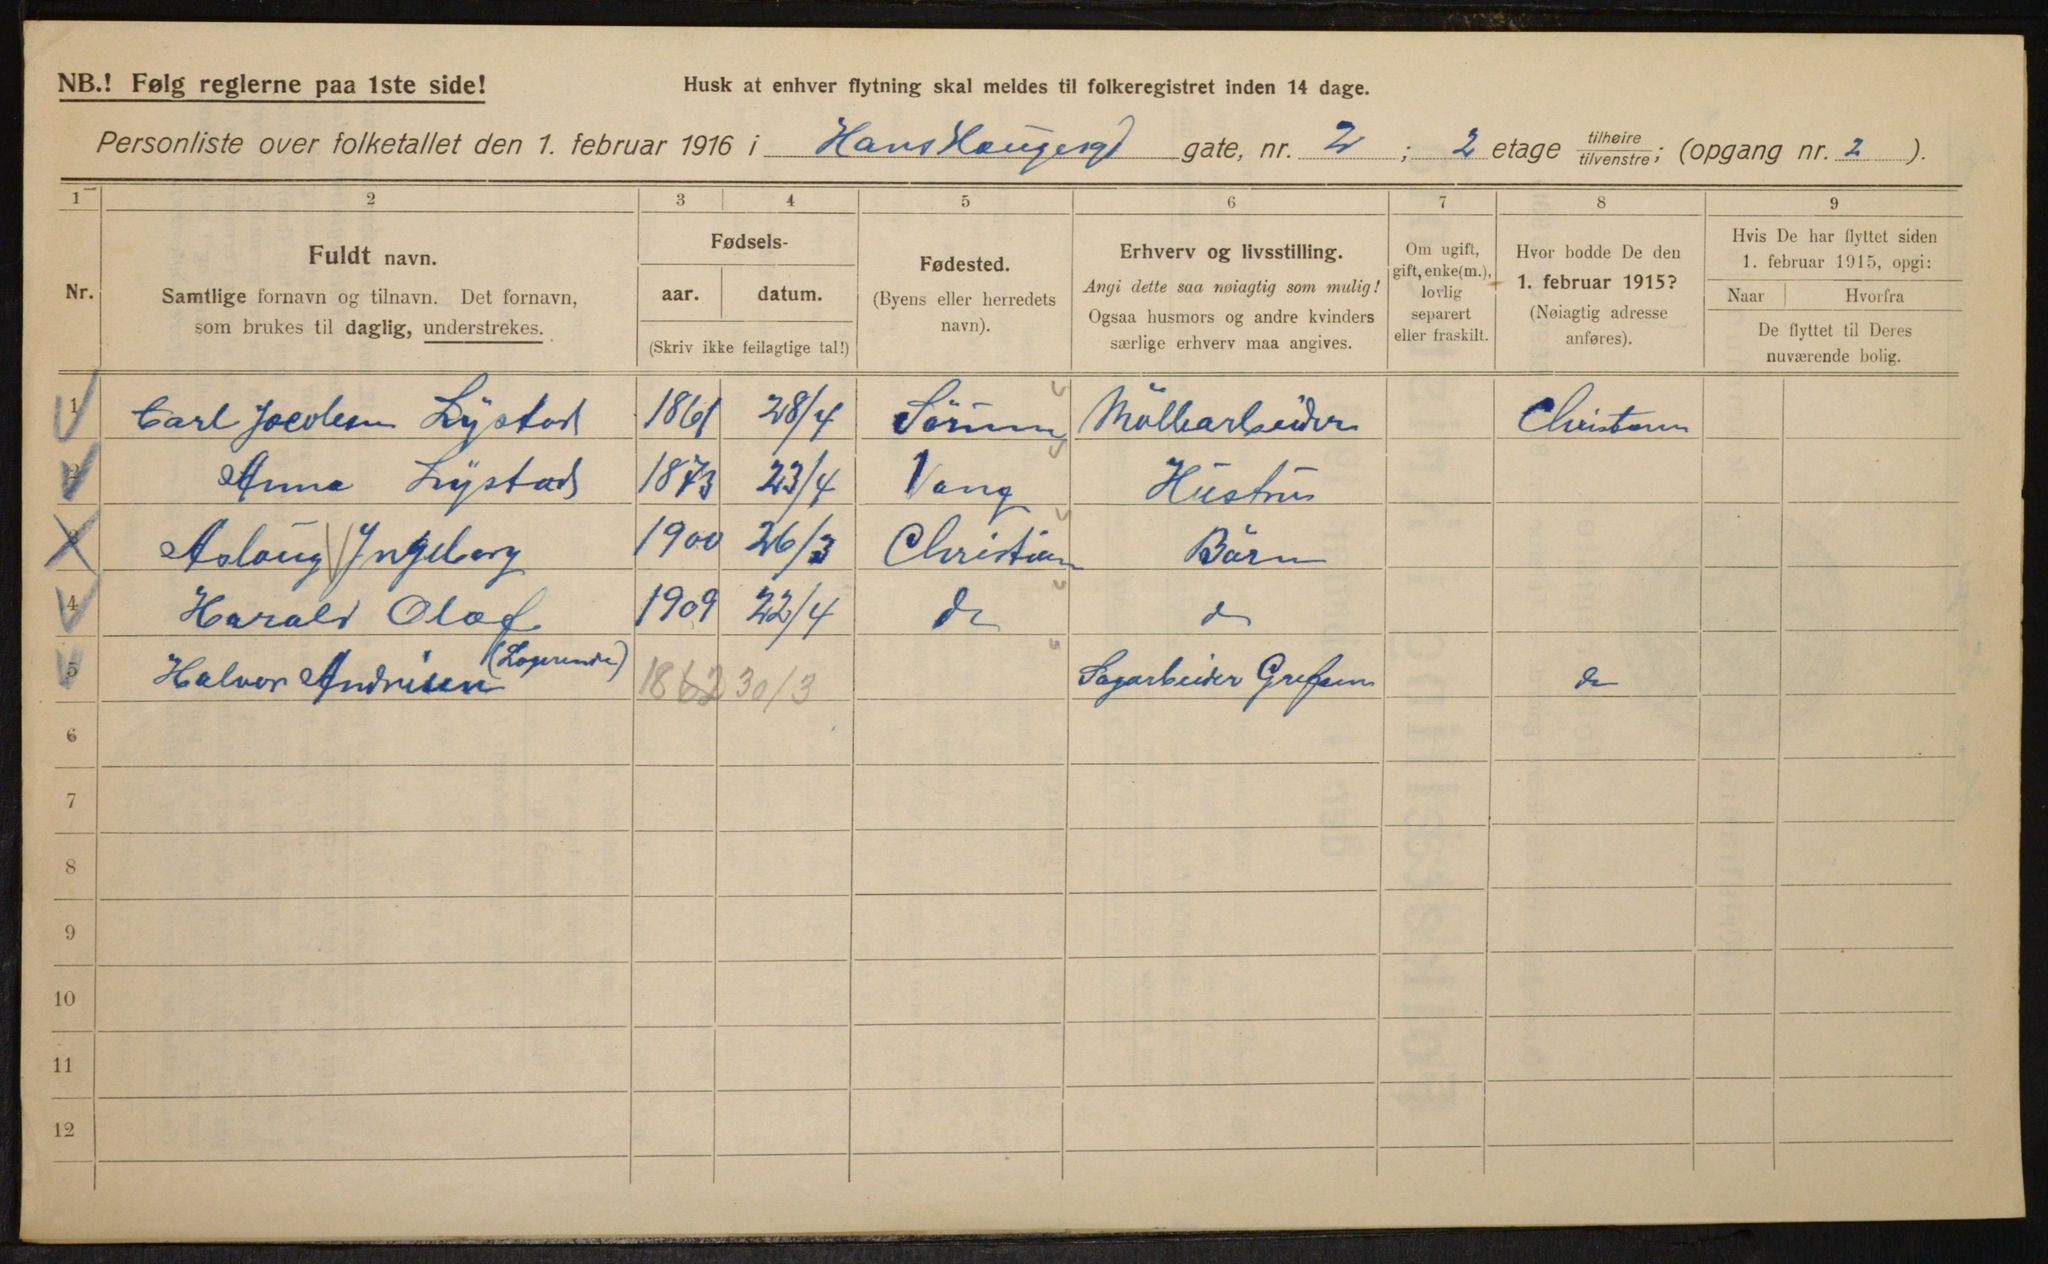 NB.! Følg reglerne paa 1ste side!
Husk at enhver flytning skal meldes til folkeregistret inden 14 dage.
Personliste over folketallet den 1. februar 1916 i Hans Haugesgd gate, nr. 2 ; 2 etage tilhøire tilvenstre; (opgang nr. 2 ).
1 2 3 4 5 6 7 8 9
Nr.
Fuldt navn.
Samtlige fornavn og tilnavn. Det fornavn,
som brukes til daglig, understrekes.
Fødsels-
aar. datum.
(Skriv ikke feilagtige tal!)
Fødested.
(Byens eller herredets
navn).
Erhverv og livsstilling.
Angi dette saa nøiagtig som mulig!
Ogsaa husmors og andre kvinders
særlige erhverv maa angives.
Om ugift,
gift, enke(m.),
lovlig
separert
eller fraskilt.
Hvor bodde De den
1. februar 1915?
(Nøiagtig adresse
anføres).
Hvis De har flyttet siden
1. februar 1915, opgi:
Naar Hvorfra
De flyttet til Deres
nuværende bolig.
1 Carl Jacobsen Lÿstad 1861 28/4 Sörum Möllearbeider Christiania
2 Anna Lÿstad 1873 23/4 Vang Hustru
3 Aslaug Ingeborg 1900 26/3 Christian Börn
4 Harald Olaf 1909 22/4 do do
5 Halvor Andrisen (Logerende) 1862 30/3 Sagarbeider Grefsen do
6
7
8
9
10
11
12